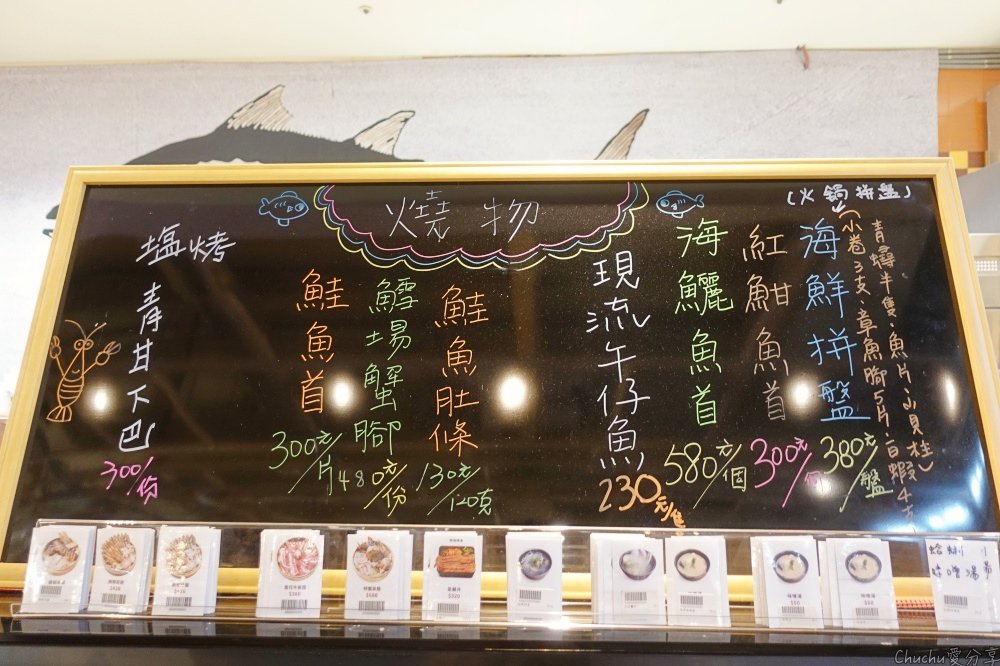 燒物
(火鍋拼盤)
海鮮拼盤
(小卷3支、章魚腳5片、白蝦4支
青蟳半隻、魚片、小貝柱)
380元/盤
紅魽魚首
300元/個
海鱺魚首
580元/個
現流午仔魚
230元/隻
鮭魚肚條
130元/120克
鱈場蟹腳
480元/份
鮭魚首
300元/片
塩烤
青甘下巴
300/份
$420
$420
$380
$680
$320
味噌湯
$50
味噌湯
$50
蛤蜊
味噌湯
Chuchu愛分享